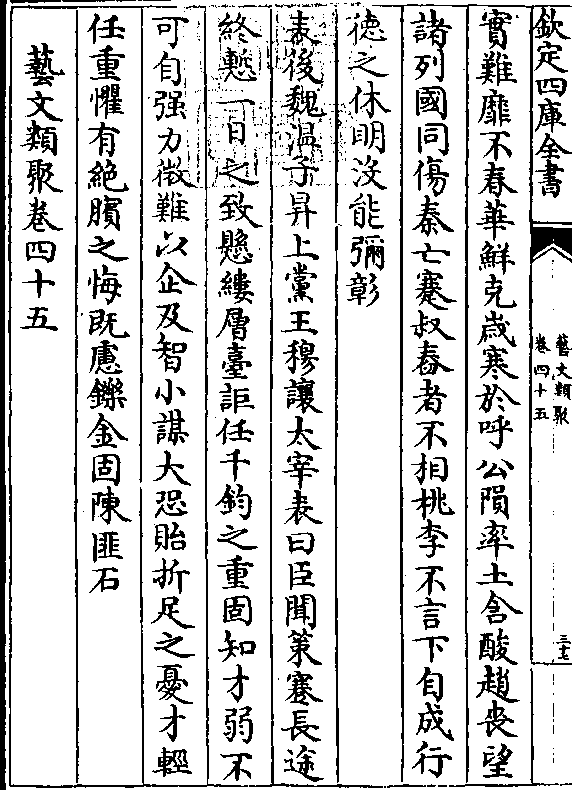 欽定四庫全書
藝文類聚
卷四十五
三十七
實難靡不春華鮮克歲寒於呼公隕率土含酸趙喪望
諸列國同傷秦亡蹇叔舂者不相桃李不言下自成行
德之休明没能彌彰
表後魏溫子昇上黨王穆讓太宰表曰臣聞策蹇長途
終慙一日之致懸縷層臺詎任千鈞之重固知才弱不
可自强力微難以企及智小謀大恐貽折足之憂才輕
任重懼有絶臏之悔既慮鑠金固陳匪石
藝文類聚卷四十五